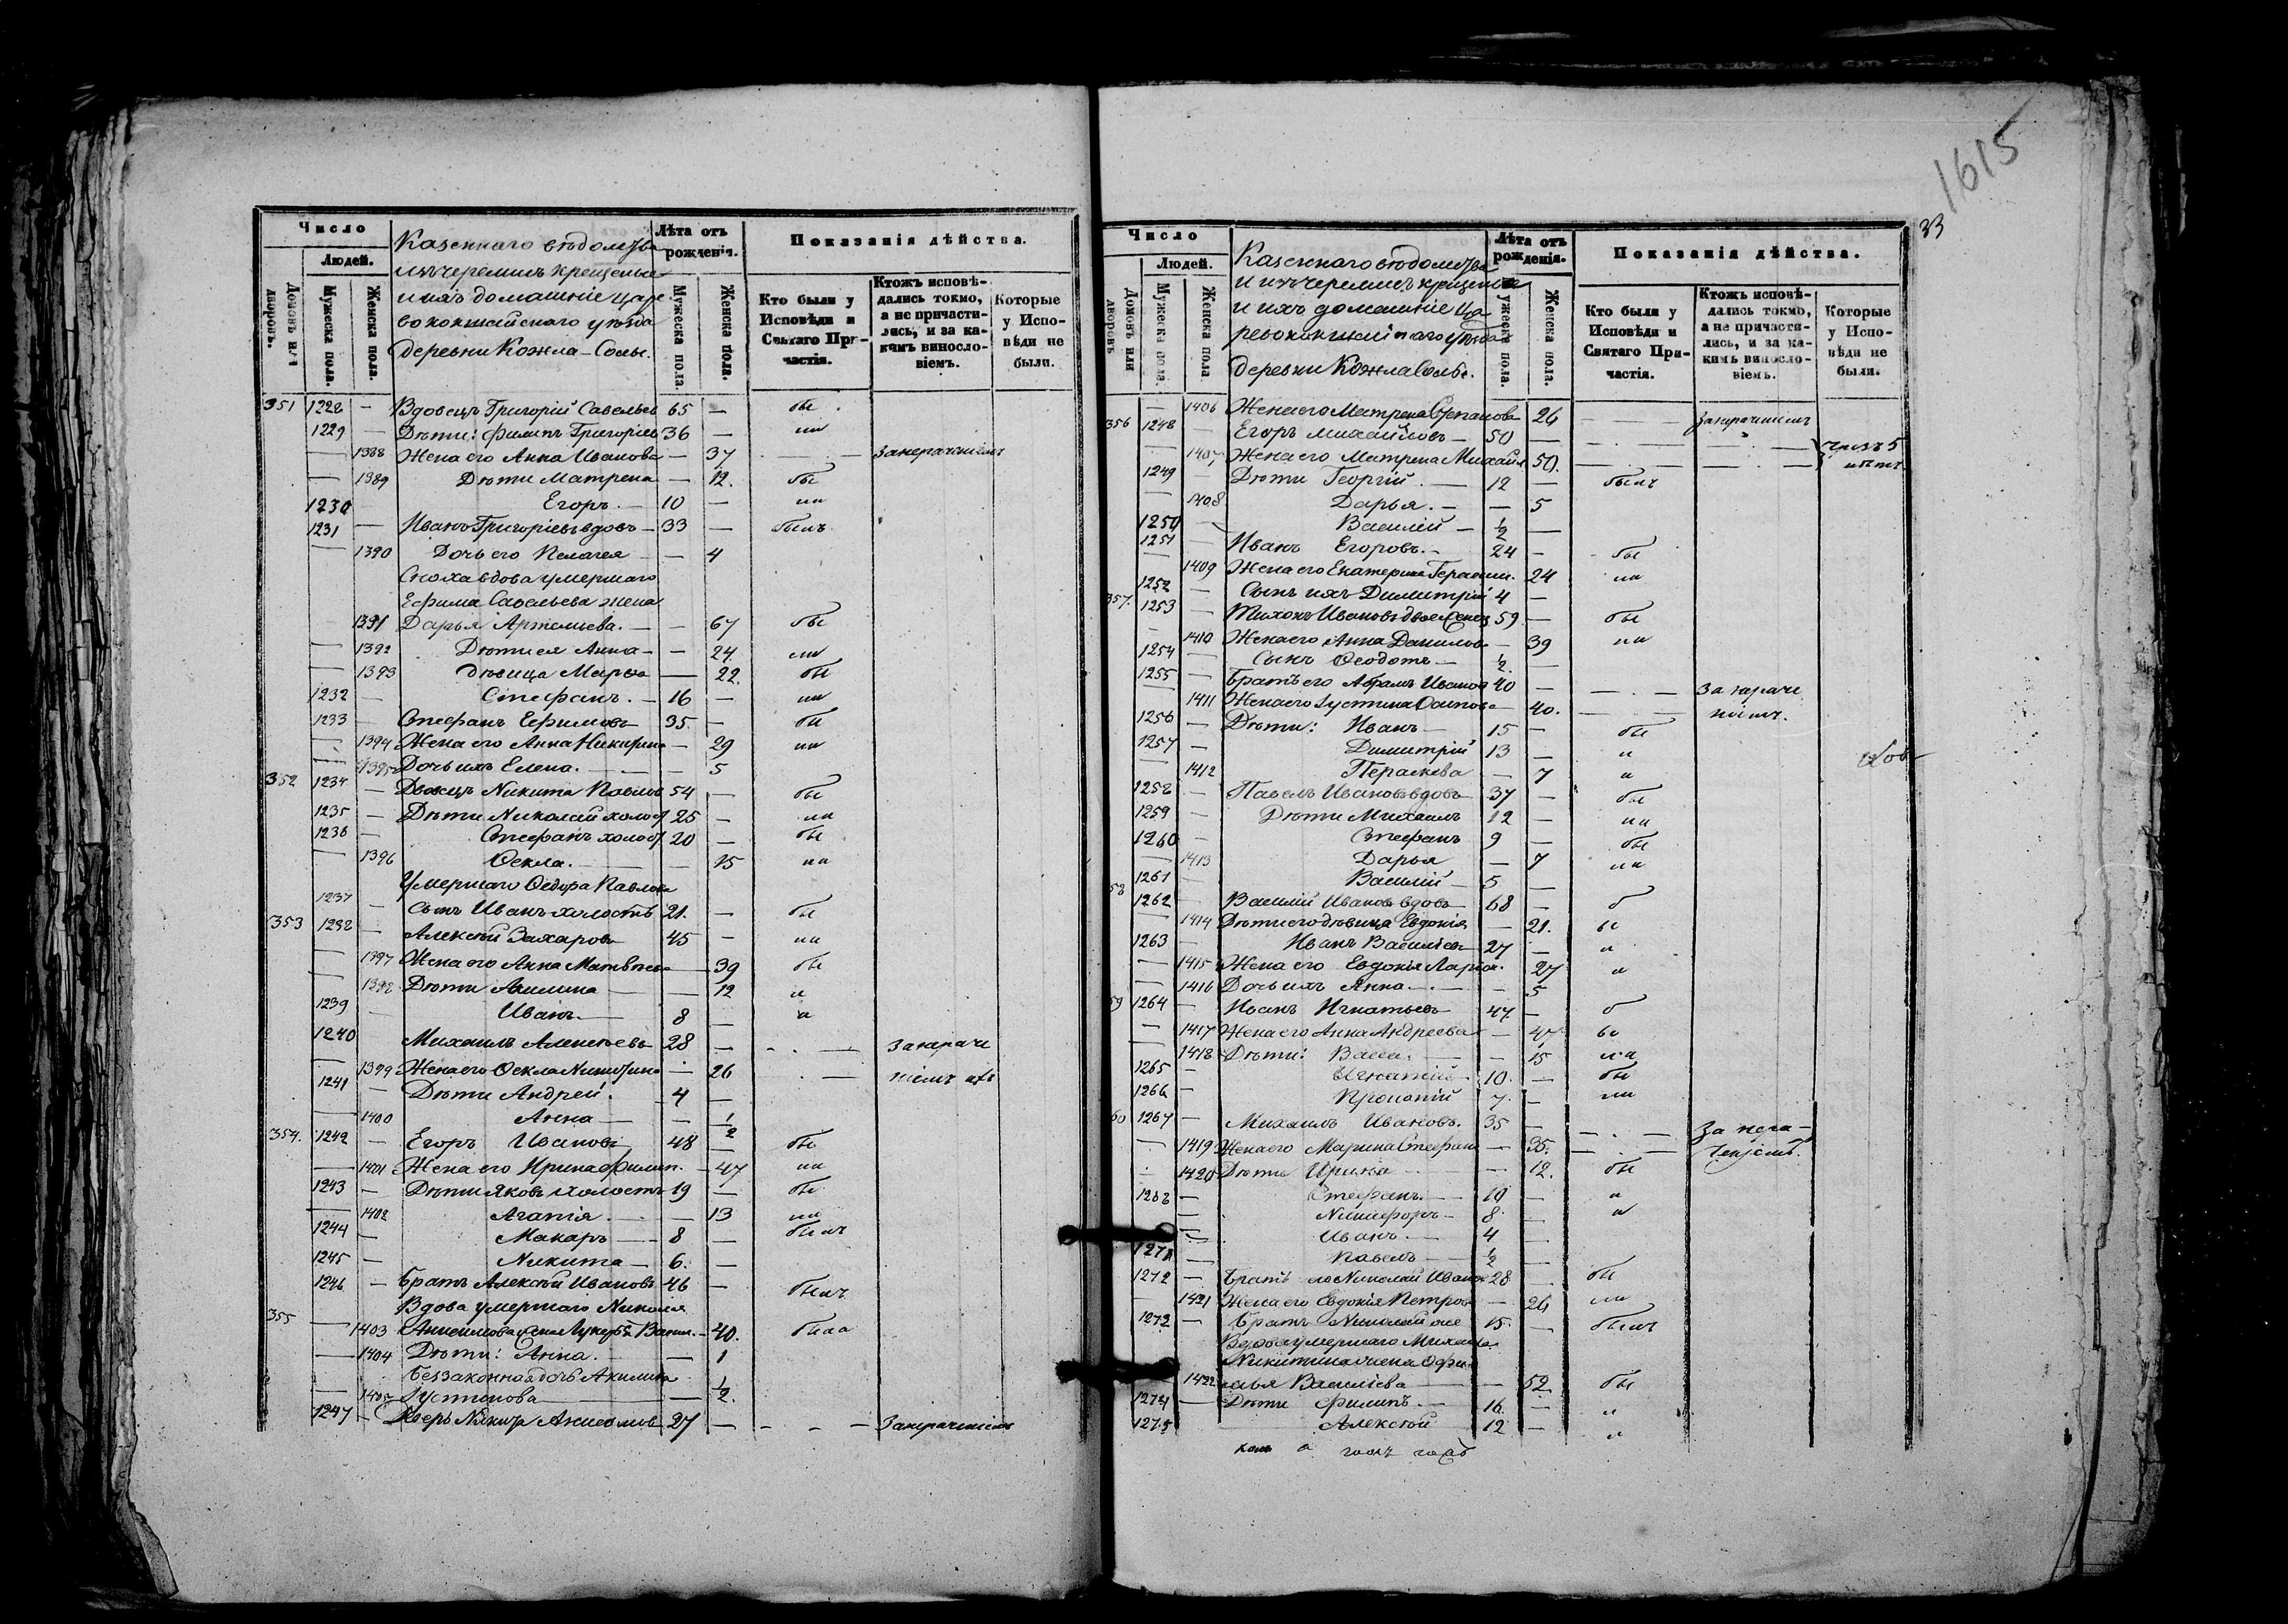 1615
33
Число
Людей.
Домовъ или дворовъ.
Мужеска пола.
Женска пола.
Казеннаго вѣдомства
изъ черемисъ крещеные
и ихъ домашніе Царе-
вококшайскаго уѣзда
деревни Кожла-Солы.
Лѣта отъ рожденія.
Мужеска пола.
Женска пола.
Показанія дѣйства.
Кто были у Исповѣди и Святаго Причастія.
Ктожъ исповѣ-дались токмо, а не причасти-лись, и за ка-кимъ винословіемъ.
Которые у Испо-вѣди не были.
351 1228 — Вдовецъ Григорій Савельев 65 — бы
1229 — Дѣти: Филипъ Григорьев 36 — ли
— 1388 Жена его Анна Иванова — 37 — — За нераченіемъ
— 1389 Дѣти Матрена — 12. бы
1230 Егоръ. — 10 — ли
1231 — Иванъ Григорьевъ вдовъ — 33 — былъ
— 1390 Дочь его Пелагея — — 4
Сноха вдова умершаго
Ефима Савельева жена
1391 Дарья Артемьева. — — 67 бы
— 1392 Дѣти ея Анна — — 24. ли
— 1393 дѣвица Марья — 22. бы
1232 — Стефанъ. — 16 — ли
1233 — Стефанъ Ефимовъ 35. — бы
— 1394 Жена его Анна Никифор — 29 ли
— 1395 Дочь ихъ Елена. — — — 5
352 1234 — Вдовецъ Никита Павлов 54 — бы
1235 — Дѣти Николай холос 25 — ли
1236 — Стефанъ холос 20 — бы
— 1396 Ѳекла. — — 15 ли
Умершаго Ѳедора Павлова
1237 — Сынъ Иванъ холостъ 21. — бы
353 1238 — Алексѣй Захаровъ 45 — ли
— 1397 Жена его Анна Матвѣева — 39 бы
— 1398 Дѣти Акилина — — 12 и
1239 — Иванъ. — 8 — и
1240 Михаилъ Алексѣевъ 28 — - . — За нераче
— 1399 Жена его Ѳекла Никифор — 26 . — ніемъ ихъ
1241 — Дѣти Андрей. — 4 —
— 1400 Анна — — ½
354. 1242 — Егоръ Ивановъ 48 — бы
— 1401 Жена его Ирина Филип. — 47 ли
1243 — Дѣти Яковъ холостъ 19 — бы
— 1402 Агапія. — — 13 ли
1244 — Макаръ — 8 — былъ
1245 — Никита — 6. —
1246 — Братъ Алексѣй Ивановъ 46 — былъ
Вдова умершаго Николая
355 — 1403 Анисимова жена Лукерья Васил. — 40. была
— 1404 Дѣти: Анна. — 1
Беззаконная дочь Акилина
— 1405 Іустинова — — ½.
1247 — Деверь Никита Анисимов 27 — - - — За нераченіемъ
Число
Людей.
Домовъ или дворовъ
Мужеска пола.
Женска пола
Казеннаго вѣдомства
и изъ черемисъ крещеные
и ихъ домашніе Ца
ревококшайскаго уѣзда
деревни Кожла Солы.
Лѣта отъ рожденія.
Мужеска пола.
Женска пола.
Показанія дѣйства.
Кто были у Исповѣди и Святаго При-частія.
Ктожъ исповѣ-дались токмо, а не причасти-лись, и за ка-кимъ винословіемъ.
Которые у Испо-вѣди не были.
— 1406 Жена его Матрена Степанова 26 — За нераченіемъ
356 1248 — Егоръ Михайловъ — 50 — — . — — чрезъ 5
— 1407 Жена его Матрена Михайл 50. — . — — . — лѣтъ
1249 — Дѣти Георгій. — 12 — былъ
— 1408 Дарья. — — 5
1250 — Василій — ½ —
1251 — Иванъ Егоровъ. — 24 — бы
— 1409 Жена его Екатерина Герасим. 24 ли
1252 — Сынъ ихъ Димитрій 4 —
357. 1253 — Тихонъ Ивановъ двоеженец 59 — бы
— 1410 Жена его Анна Данилов — 39 ли
1254 — Сынъ Ѳеодотъ — ½. —
1255 — Братъ его Абрамъ Иванов 40 — — . — За нераче
— 1411 Жена его Іустина Осипова — 40. — — ніемъ.
1256 — Дѣти: Иванъ — 15 — бы
1257 — Димитрій 13 — и
— 1412 Параскева — 7 и
1258 — Павелъ Ивановъ вдовъ 37 — бы
1259 — Дѣти Михаилъ 12 — ли
1260 — Стефанъ 9 — бы
— 1413 Дарья — 7 ли
1261 — Василій — 5 —
58 1262 — Василій Ивановъ вдовъ 68 — б
— 1414 Дѣти его дѣвица Евдокія — 21. ы
1263 — Иванъ Васильев 27 — и
— 1415 Жена его Евдокія Ларіон. 27 и
— 1416 Дочь ихъ Анна — . — — 5
59 1264 — Иванъ Игнатьевъ 47 — б
— 1417 Жена его Анна Андреева — 47 ы
— 1418 Дѣти: Васса. — — 15 ли
1265 — Игнатій — 10. — бы
1266 — Прокопій 7. — ли
60 1267 — Михаилъ Ивановъ. 35 — — . — За нера-
— 1419 Жена его Марина Стефан — 35. — . — ченіемъ.
— 1420 Дѣти Ирина — 12. бы
1268 — Стефанъ. — 10 — и
— Никифоръ — 8 — и
— Иванъ. — 4 —
1271 — Павелъ — ½ —
1272 — Братъ его Николай Иванов 28 — бы
— 1421 Жена его Евдокія Петров — 26 ли
1272 — Братъ Николай же 15. — былъ
Вдова умершаго Михаила
Никитина жена Офи-
1422 мья Васильева — — 52 бы
1274 — Дѣти Филипъ. — 16. — и
1275 Алексѣй 12 — и